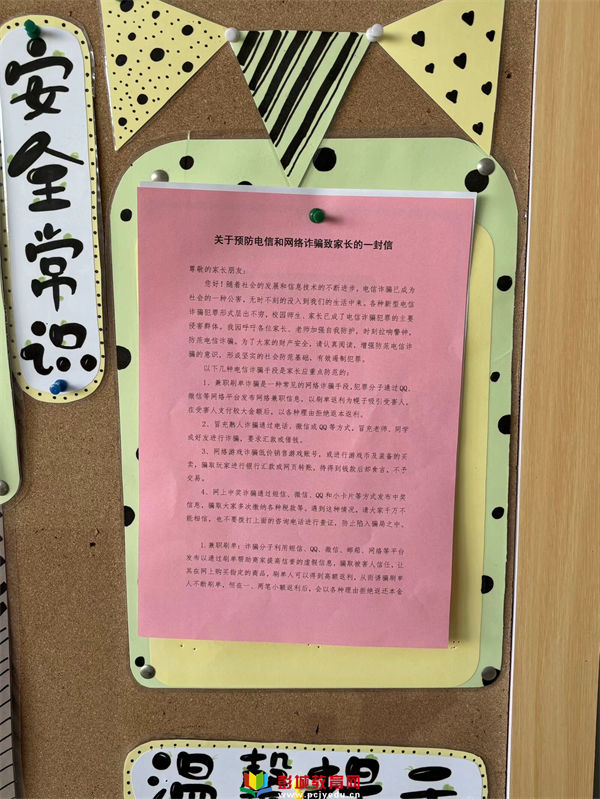 安全常识
关于预防电信和网络诈骗致家长的一封信
尊敬的家长朋友：
您好！随着社会的发展和信息技术的不断进步，电信诈骗已成为
社会的一种公害，无时不刻的没入到我们的生活中来，各种新型电信
诈骗犯罪形式层出不穷，校园师生、家长已成了电信诈骗犯罪的主要
侵害群体，我园呼吁各位家长、老师加强自我防护，时刻拉响警钟，
防范电信诈骗，为了大家的财产安全，请认真阅读，增强防范电信诈
骗的意识，形成坚实的社会防范基础，有效遏制犯罪。
以下几种电信诈骗手段是家长应重点防范的：
1、兼职刷单诈骗是一种常见的网络诈骗手段，犯罪分子通过QQ、
微信等网络平台发布网络兼职信息，以刷单返利为幌子吸引受害人，
在受害人支付较大金额后，以各种理由拒绝返本返利。
2、冒充熟人诈骗通过电话、微信或QQ等方式，冒充老师、同学
或好友进行诈骗，要求汇款或借钱。
3、网络游戏诈骗低价销售游戏账号，或进行游戏币及装备的买
卖，骗取玩家进行银行汇款或网页转账，待得到钱款后却食言，不予
交易。
4、网上中奖诈骗通过短信、微信、QQ和小卡片等方式发布中奖
信息，骗取大家多次缴纳各种税款等，遇到这种情况，请大家千万不
能相信，也不要拨打上面的咨询电话进行查证，防止陷入骗局之中。
1.兼职刷单：诈骗分子利用短信、QQ、微信、邮箱、网络等平台
发布以通过刷单帮助商家提高信誉的虚假信息，骗取被害人信任，让
其在网上购买指定的商品，刷单人可以得到高额返利，从而诱骗刷单
人不断刷单，但在一、两笔小额返利后，会以各种理由拒绝返还本金
温馨提示
彭城教育网
www.pcjyedu.cn